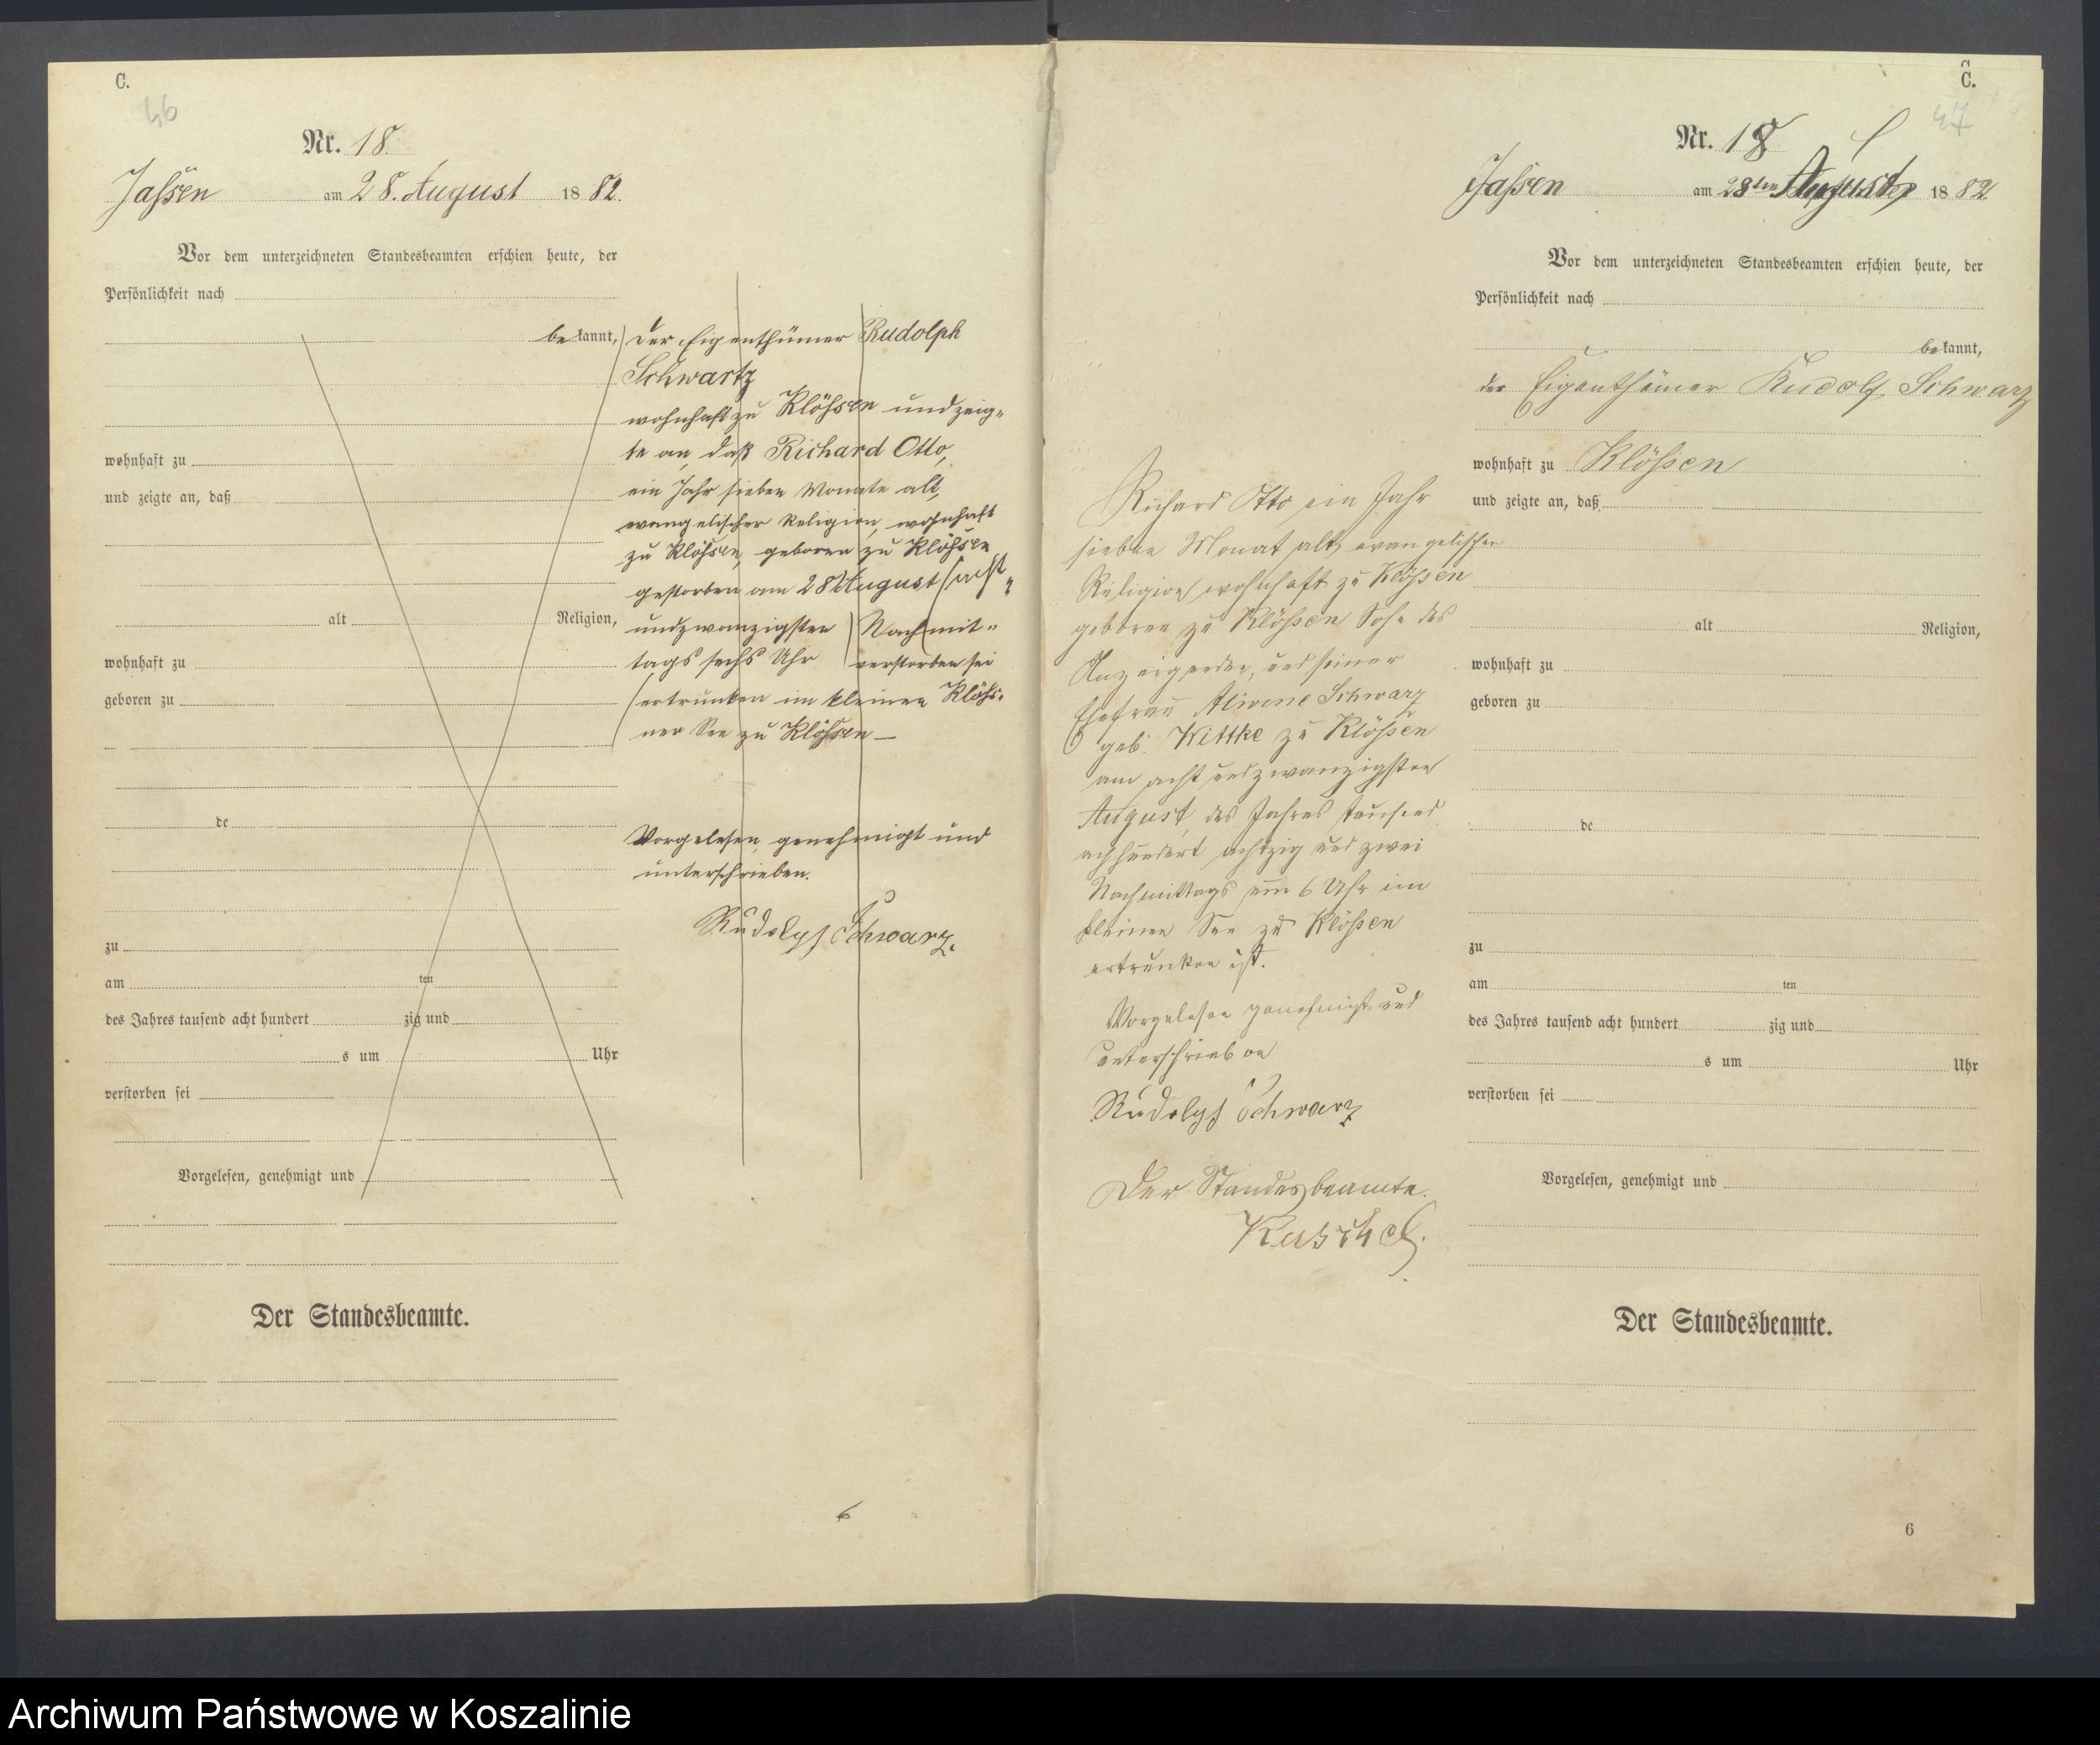 C.
46
Nr. 18.
Jassen am 28. August 1882.
Vor dem unterzeichneten Standesbeamten erschien heute, der
Persönlichkeit nach
bekannt,
wohnhaft zu
und zeigte an, daß
alt Religion,
wohnhaft zu
geboren zu
de
zu
am ten
des Jahres tausend acht hundert zig und
s um Uhr
verstorben sei
Vorgelesen, genehmigt und
Der Standesbeamte.
der Eigenthümer Rudolph
Schwartz
wohnhaft zu Klößen und zeig-
te an, daß Richard Otto,
ein Jahr sieben Monate alt,
evangelischer Religion, wohnhaft
zu Klößen, geboren zu Klößen
gestorben am 28 August (acht-
undzwanzigsten) Nachmit-
tags sechs Uhr verstorben sei
ertrunken im kleinen Klöß-
ner See zu Klößen —
Vorgelesen, genehmigt und
unterschrieben.
Rudolph Schwarz.
6
C.
47
Nr. 18
Jassen am 28ten August 1882
Vor dem unterzeichneten Standesbeamten erschien heute, der
Persönlichkeit nach
bekannt,
der Eigenthümer Rudolf Schwarz
wohnhaft zu Klößen
und zeigte an, daß
alt Religion,
wohnhaft zu
geboren zu
de
zu
am ten
des Jahres tausend acht hundert zig und
s um Uhr
verstorben sei
Vorgelesen, genehmigt und
Der Standesbeamte.
Richard Otto, ein Jahr
sieben Monat alt, evangelischer
Religion, wohnhaft zu Klößen
geboren zu Klößen Sohn des
Anzeigenden, und seiner
Ehefrau Alwine Schwarz
geb. Wittke zu Klößen
am acht und zwanzigsten
August, des Jahres tausend
achhundert achtzig und zwei
Nachmittags um 6 Uhr im
kleinen See zu Klößen
ertrunken ist.
Vorgelesen genehmigt und
unterschrieben
Rudolph Schwarz
Der Standesbeamte.
6
Archiwum Państwowe w Koszalinie